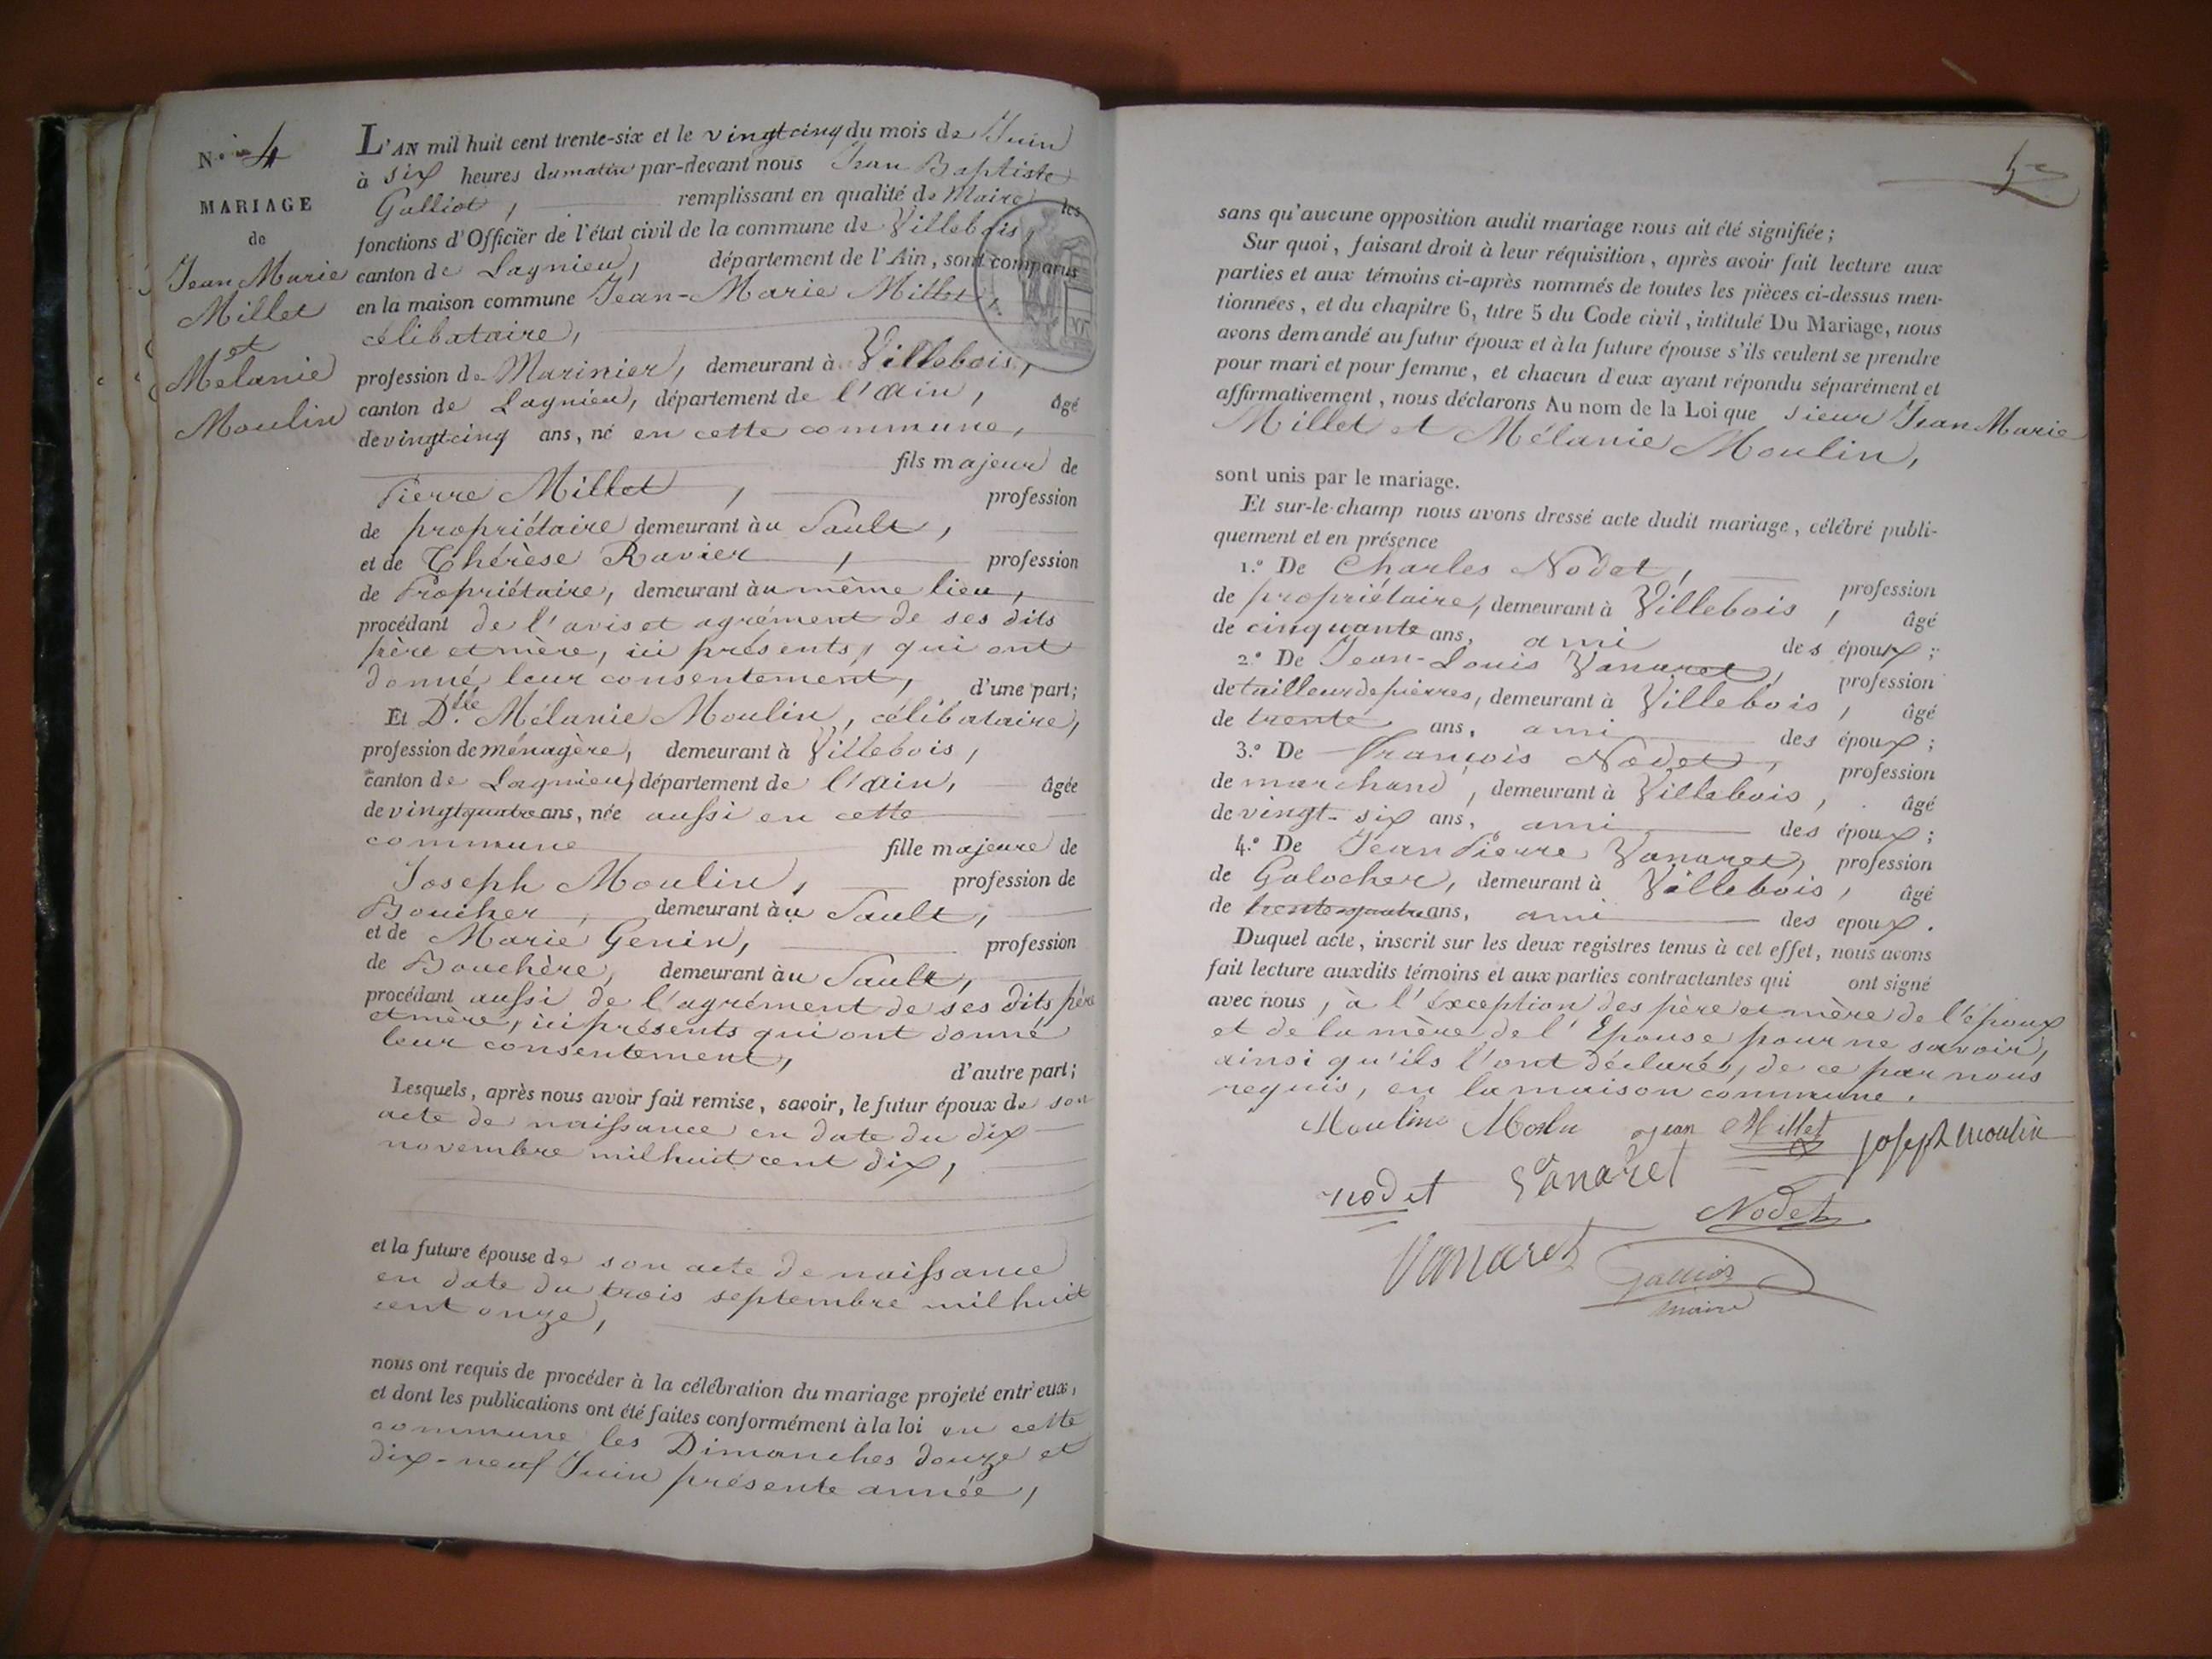 N.º 4
MARIAGE
de
Jean Marie
Millet
et
Mélanie
Moulin
L'AN mil huit cent trente-six et le vingt cinq du mois de Juin
à six heures du matin par-devant nous Jean Baptiste
Galliot, remplissant en qualité de Maire les
fonctions d'Officier de l'état civil de la commune de Villebois,
canton de Lagnieu, département de l'Ain, sont comparus
en la maison commune Jean-Marie Millet,
célibataire,
profession de Marinier, demeurant à Villebois,
canton de Lagnieu, département de l'Ain, âgé
de vingt cinq ans, né en cette commune,
fils majeur de
Pierre Millet, profession
de propriétaire demeurant àu Sault,
et de Thérèse Ravier, profession
de Propriétaire, demeurant àu même lieu,
procédant de l'avis et agrément de ses dits
père et mère, ici présents, qui ont
donné leur consentement, d'une part;
Et D.lle Mélanie Moulin, célibataire,
profession de ménagère, demeurant à Villebois,
canton de Lagnieu, département de l'Ain, âgée
de vingt quatre ans, née aussi en cette
commune fille majeure de
Joseph Moulin, profession de
Boucher, demeurant àu Sault,
et de Marie Genin, profession
de Bouchère, demeurant àu Sault,
procédant aussi de l'agrément de ses dits père
et mère, ici présents qui ont donné
leur consentement,
d'autre part;
Lesquels, après nous avoir fait remise, savoir, le futur époux de son
acte de naissance en date du dix
novembre mil huit cent dix,
et la future épouse de son acte de naissance
en date du trois septembre mil huit
cent onze,
nous ont requis de procéder à la célébration du mariage projeté entr'eux,
et dont les publications ont été faites conformément à la loi en cette
commune les Dimanches douze et
dix-neuf Juin présente année,
sans qu'aucune opposition audit mariage nous ait été signifiée;
Sur quoi, faisant droit à leur réquisition, après avoir fait lecture aux
parties et aux témoins ci-après nommés de toutes les pièces ci-dessus men-
tionnées, et du chapitre 6, titre 5 du Code civil, intitulé Du Mariage, nous
avons demandé au futur époux et à la future épouse s'ils veulent se prendre
pour mari et pour femme, et chacun d'eux ayant répondu séparément et
affirmativement, nous déclarons Au nom de la Loi que sieur Jean Marie
Millet et Mélanie Moulin,
sont unis par le mariage.
Et sur-le-champ nous avons dressé acte dudit mariage, célébré publi-
quement et en présence
1.º De Charles Nodet, profession
de propriétaire, demeurant à Villebois, âgé
de cinquante ans, ami des époux;
2.º De Jean-Louis Vanaret, profession
de tailleur de pierres, demeurant à Villebois, âgé
de trente ans, ami des époux;
3.º De François Nodet, profession
de marchand, demeurant à Villebois, âgé
de vingt-six ans, ami des époux;
4.º De Jean Pierre Vanaret, profession
de Galocher, demeurant à Villebois, âgé
de trente quatre ans, ami des epoux.
Duquel acte, inscrit sur les deux registres tenus à cet effet, nous avons
fait lecture auxdits témoins et aux parties contractantes qui ont signé
avec nous, à l'éxception des père et mère de l'époux
et de la mère de l'Epouse pour ne savoir,
ainsi qu'ils l'ont déclaré, de ce par nous
requis, en la maison commune.
Jean Millet Joseph Moulin
nodet Vanaret
Nodet
Vanaret Galliot
maire